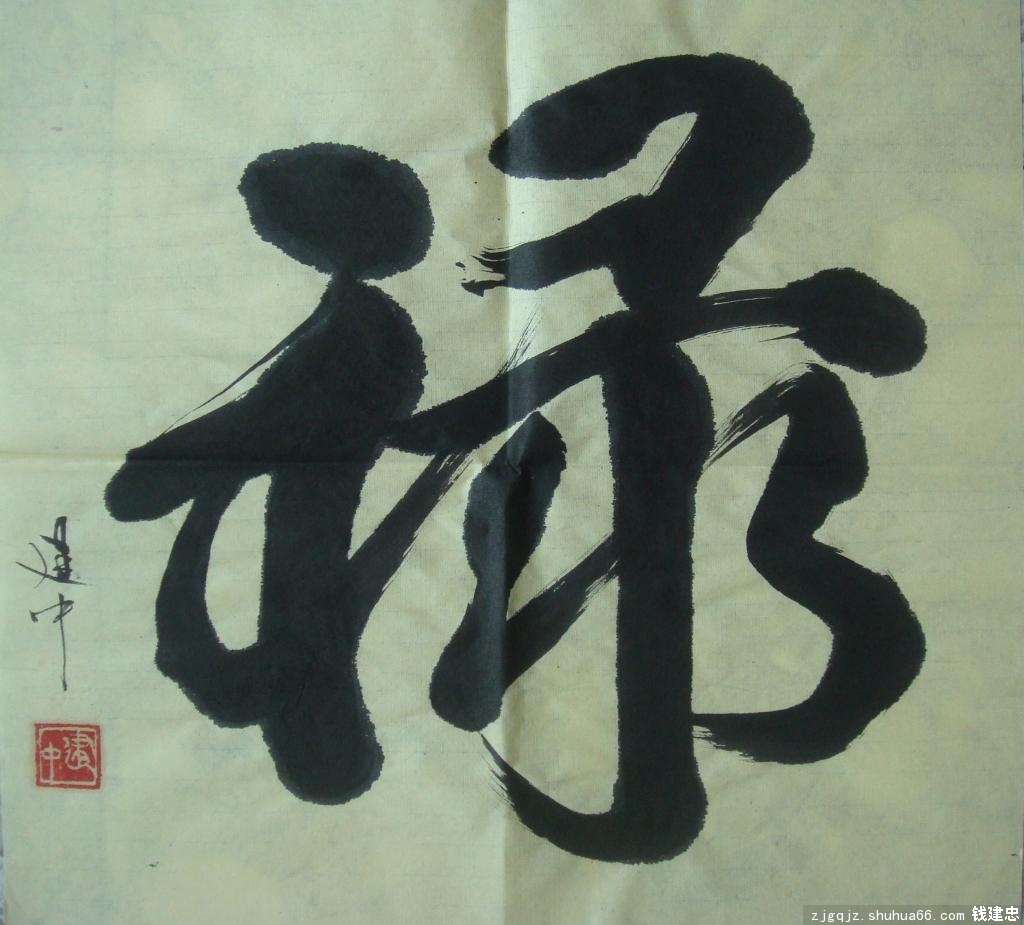 禄
建中
建中
zjgqjz.shuhua66.com 钱建忠